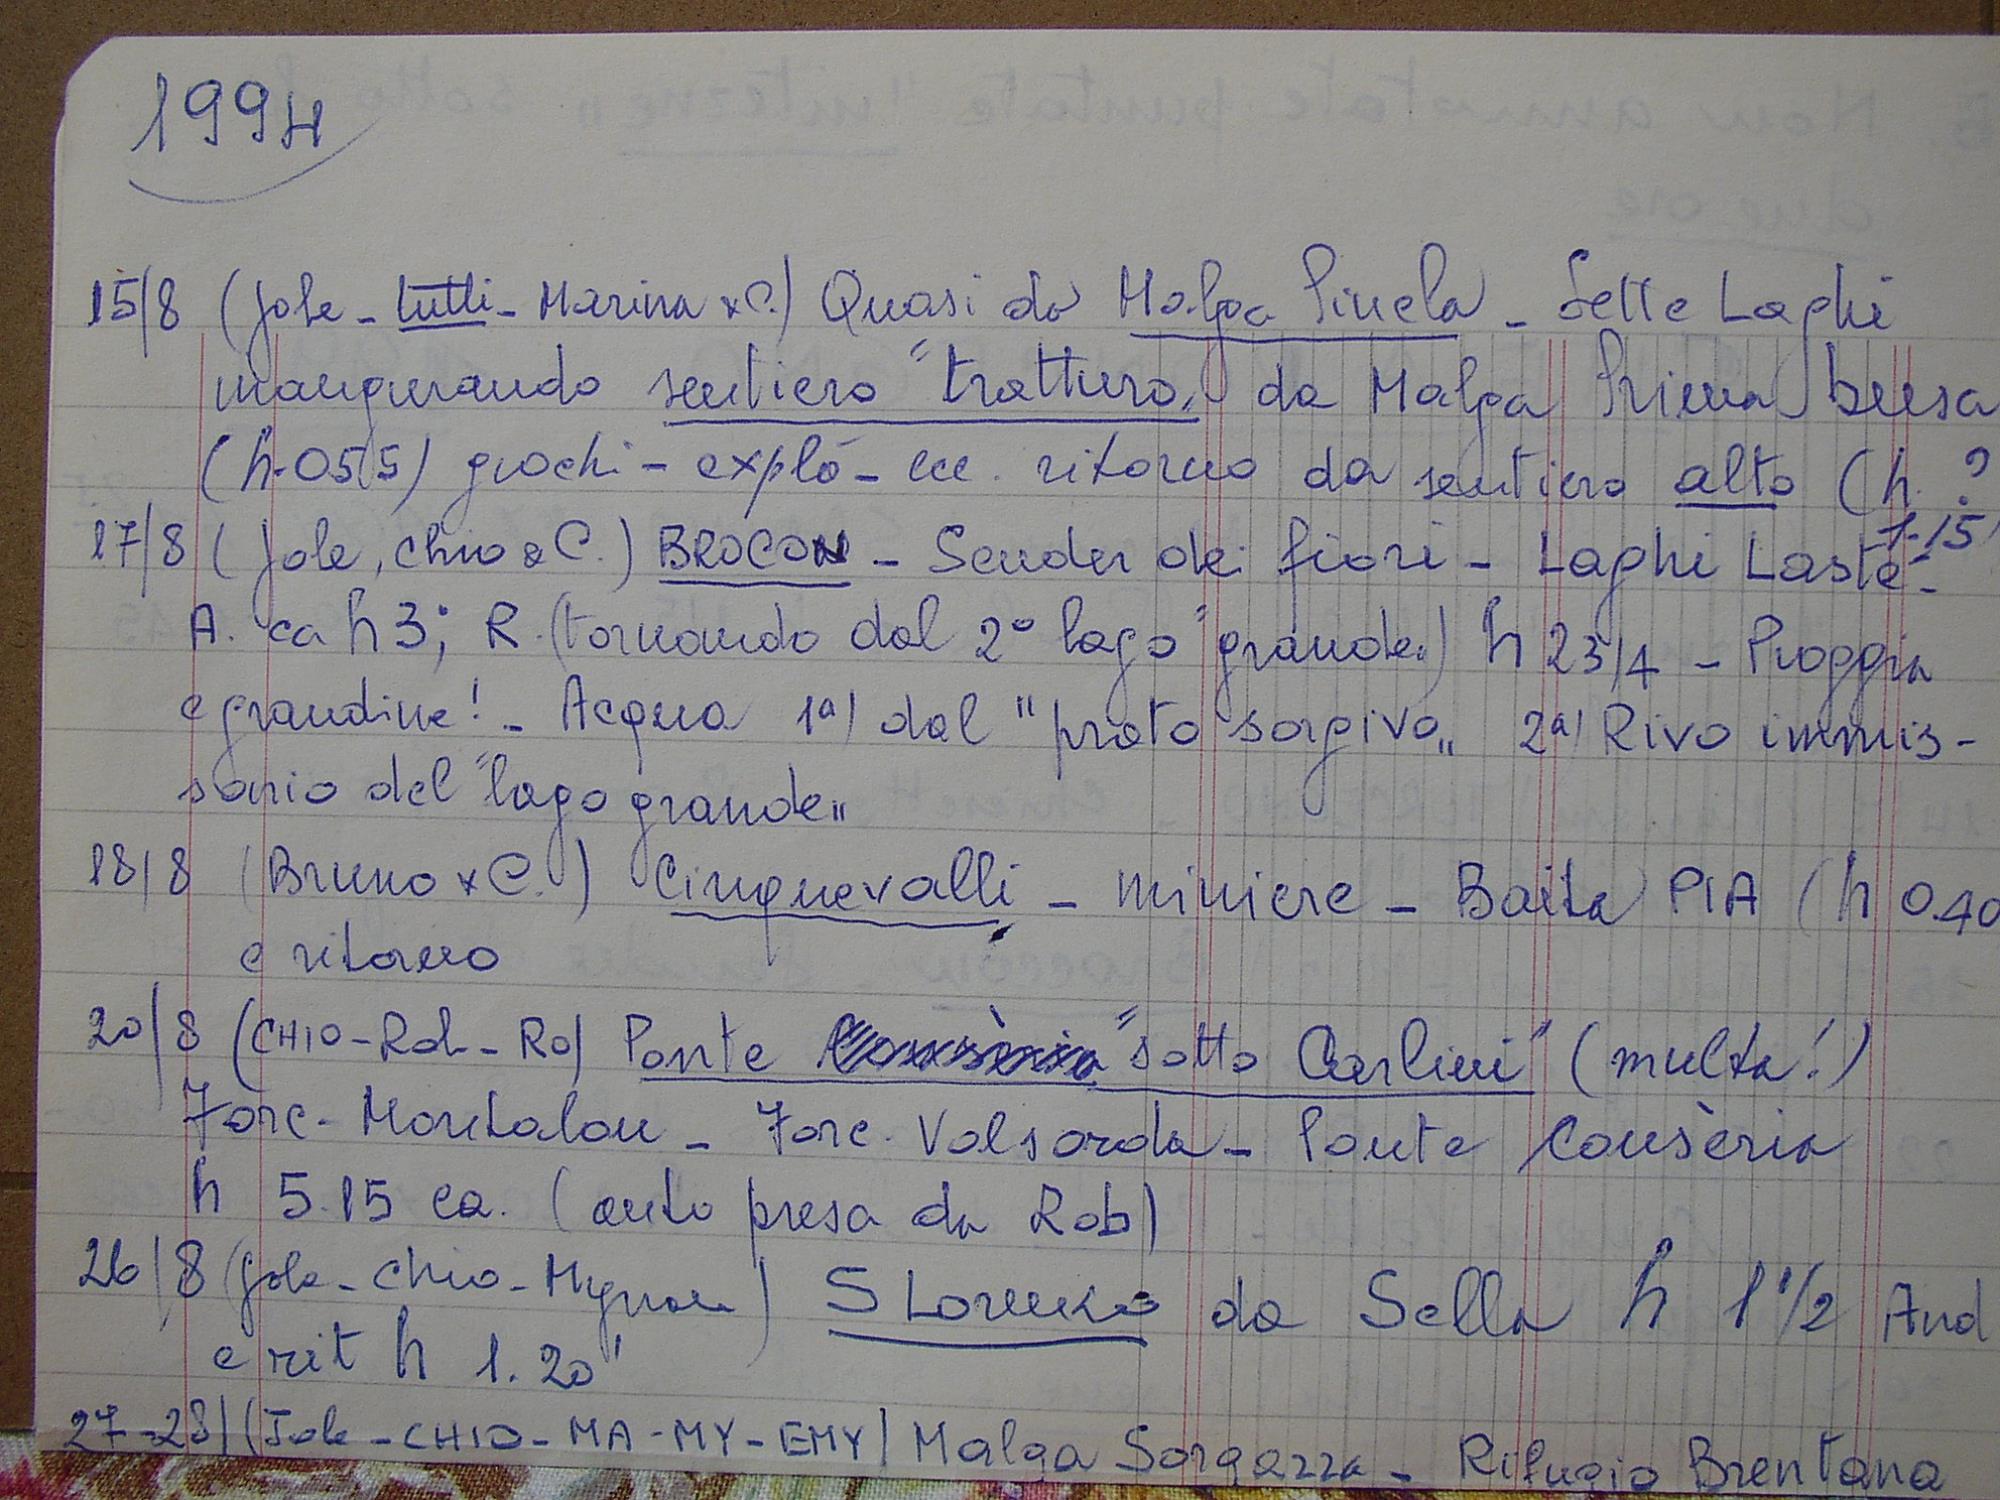 1994
15/8 (Jole - tutti - Marina & C.) Quasi da Malga Sinela - Sette Laghi
inaugurando sentiero "tratturo" da Malga Prima busa
(h. 055) giochi - explò - ecc. ritorno da sentiero alto (h. ?
1.15'
17/8 (Jole, Chio & C.) BROCON - Sender dei fiori - Laghi Lastè -
A. ca h 3; R. (tornando dal 2° lago "grande") h 2 3/4 - Pioggia
e grandine! - Acqua 1ª) dal "prato sorgivo" 2ª) Rivo immis-
sario del "lago grande"
18/8 (Bruno & C.) Cinquevalli - miniere - Baita PIA (h 0.40
e ritorno
20/8 (CHIO - Rob - Ro) Ponte "sotto Carlini" (multa!)
Forc. Montalon - Forc. Valsorda - Ponte Consèria
h 5.15 ca. (auto presa da Rob)
26/8 (Jole - Chio - ) S Lorenzo da Sella h 1 1/2 And
e rit h 1.20'
27-28) (Jole - CHIO - MA - MY - EMY) Malga Sorgazza - Rifugio Brentana